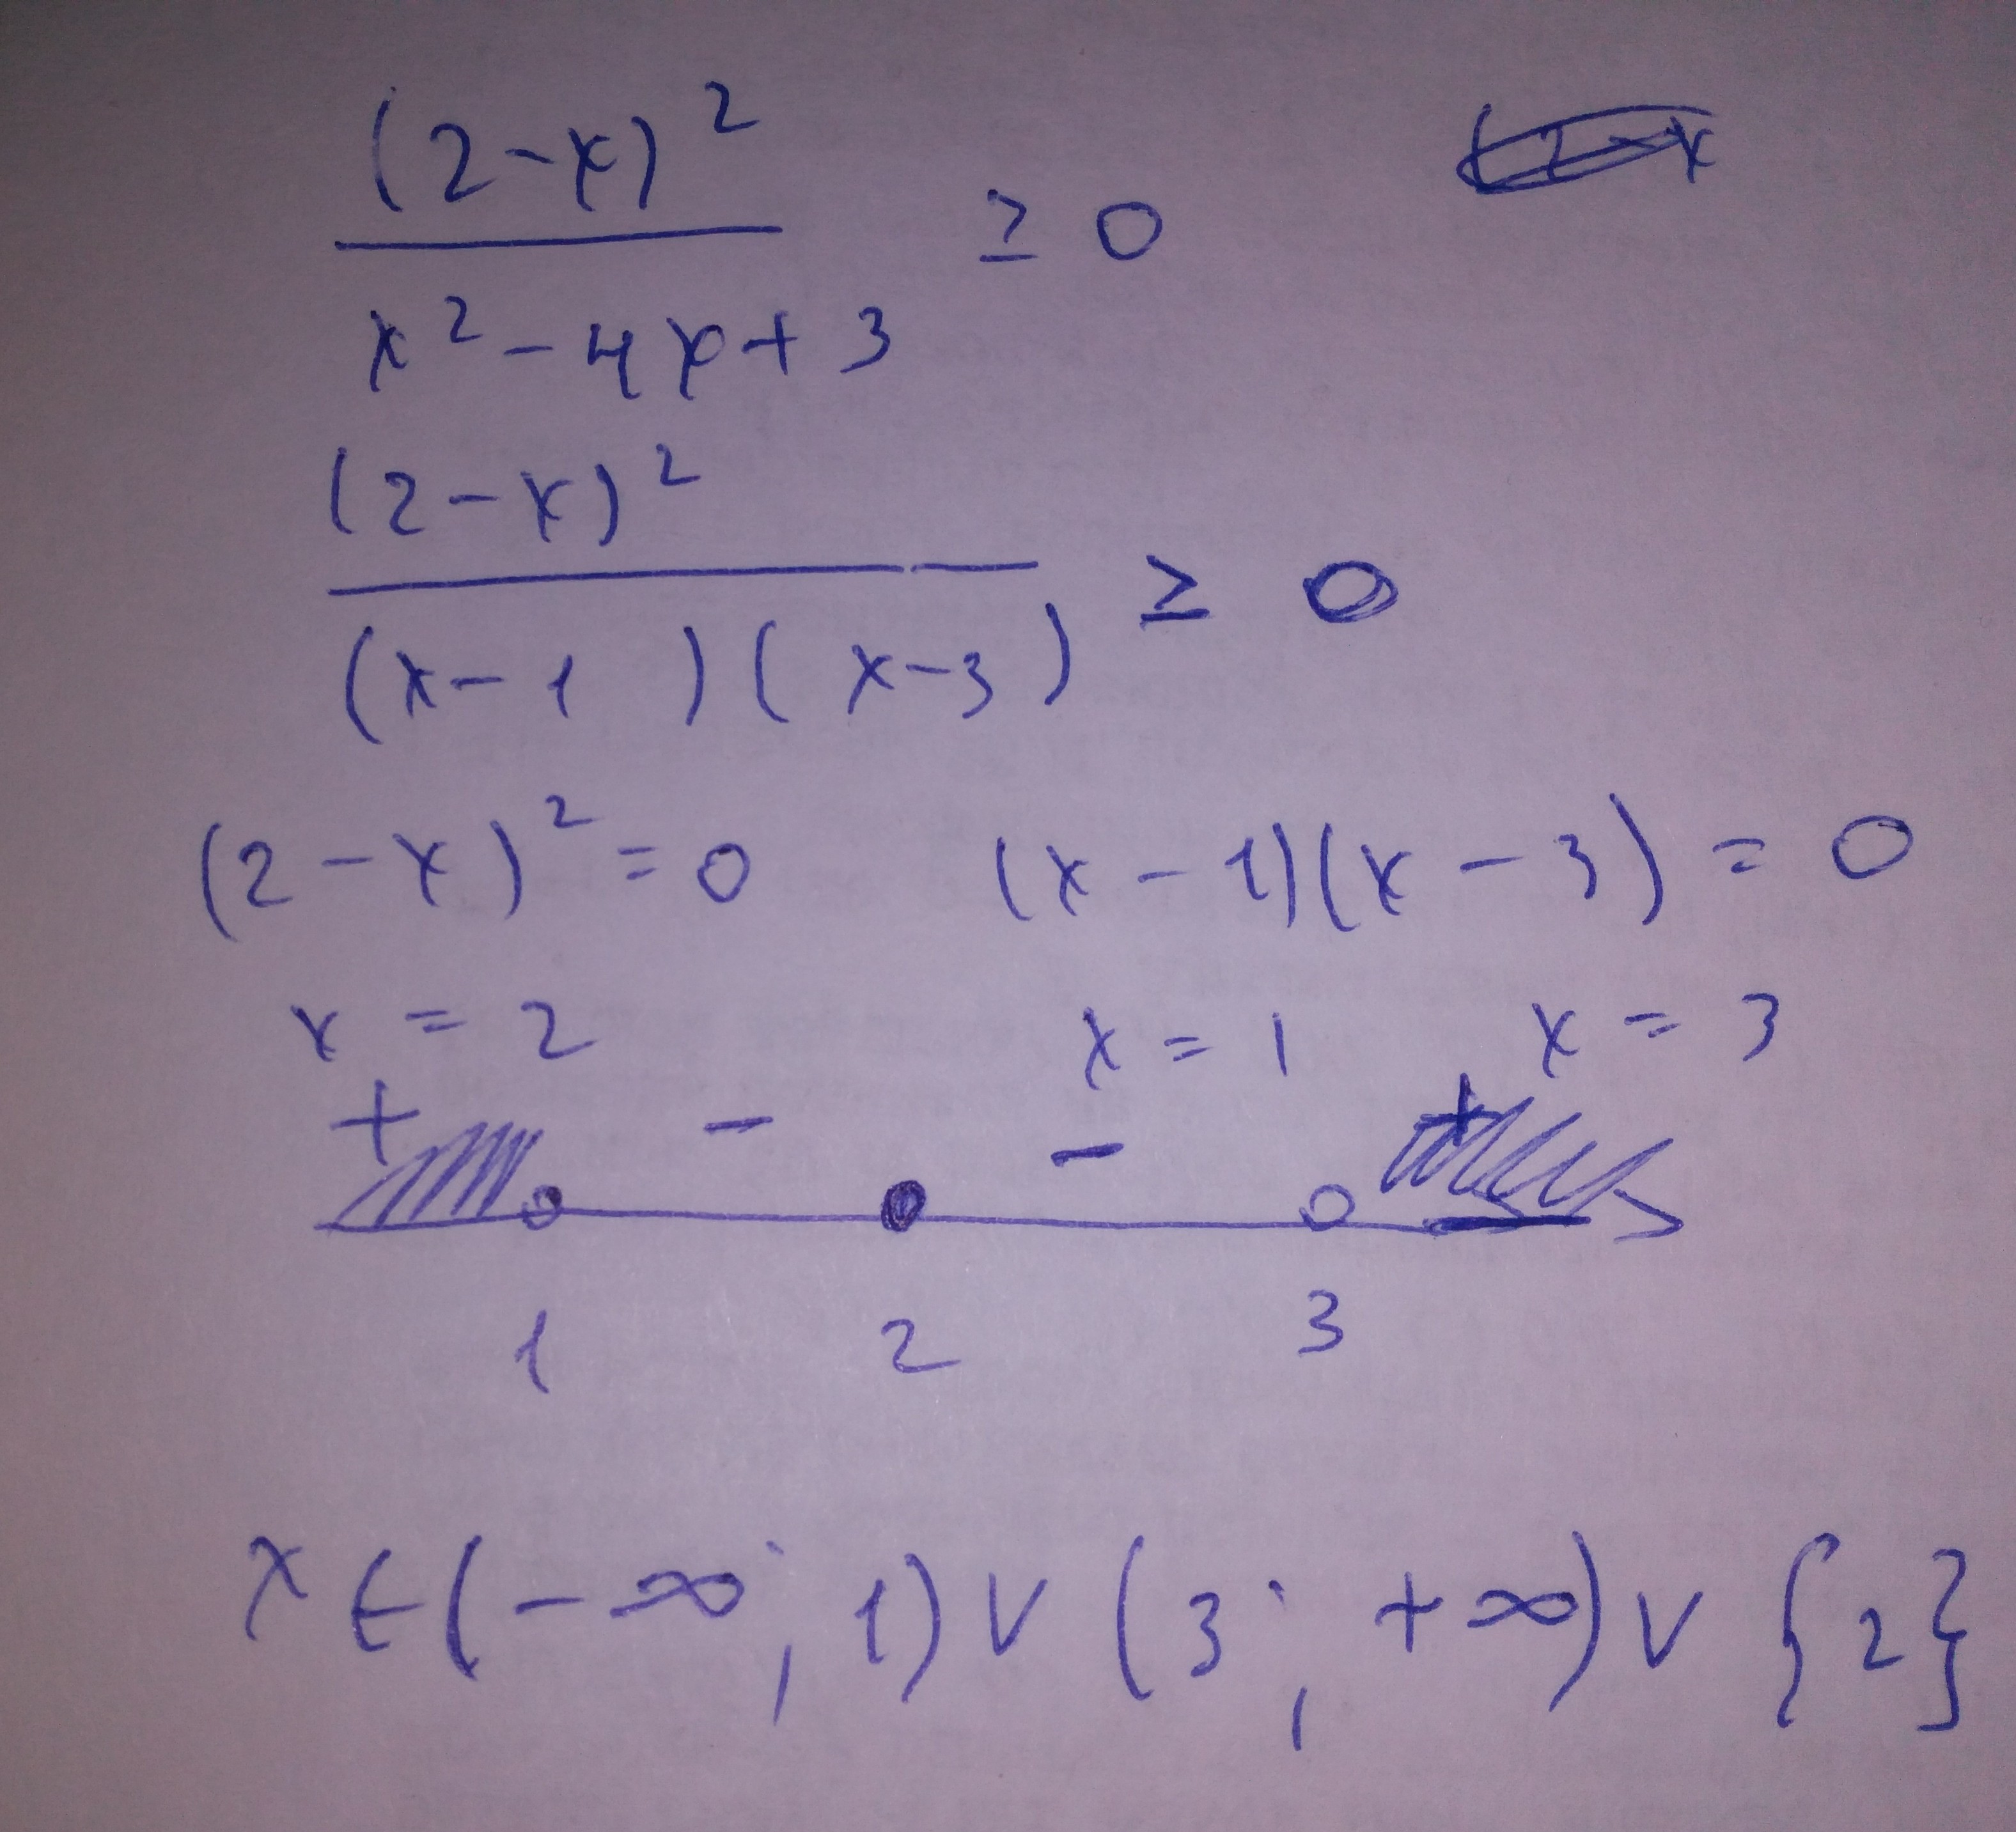 (2-x)² / x²-4x+3 ≥ 0
(2-x)² / (x-1)(x-3) ≥ 0
(2-x)²=0 (x-1)(x-3)=0
x=2 x=1 x=3
+ - - +
1 2 3
x∈(-∞;1)∨(3;+∞)∨{2}